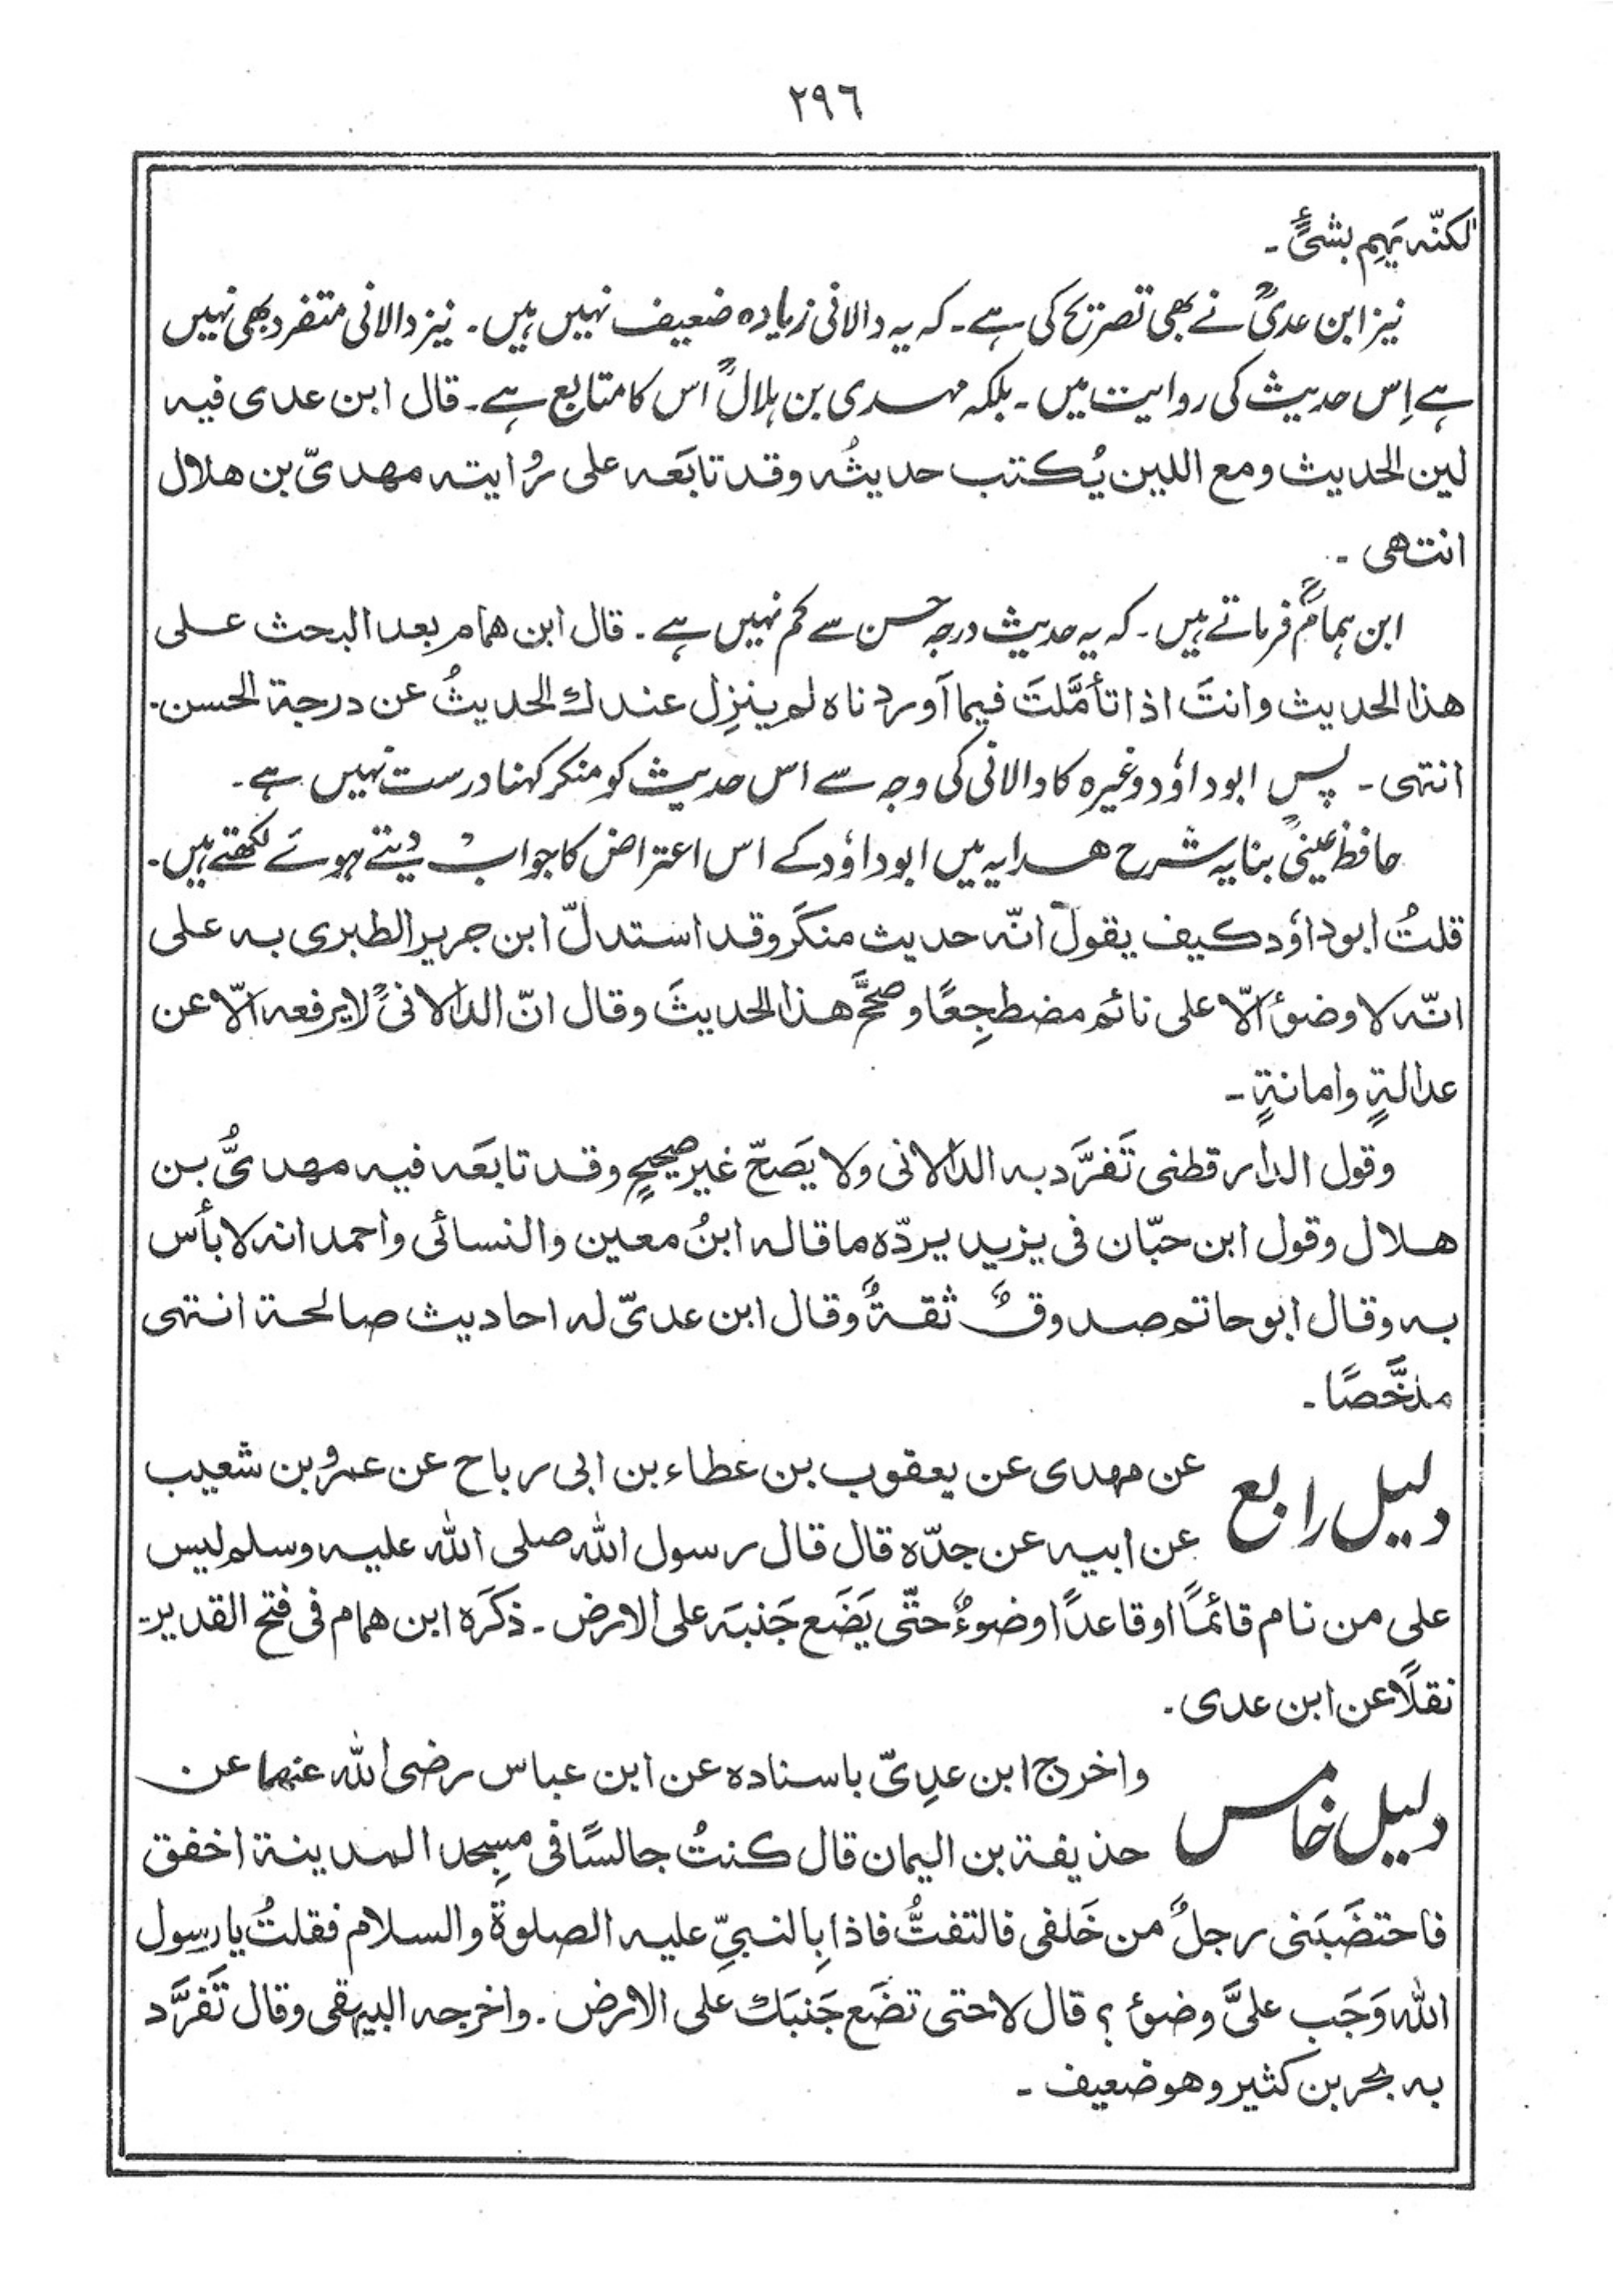 ٢٩٦
لکنّہ یَہِم بشئٍ ۔
نیز ابن عدیؒ نے بھی تصریح کی ہے۔ کہ یہ دالانی زیادہ ضعیف نہیں ہیں ۔ نیز دالانی متفرد بھی نہیں
ہے اِس حدیث کی روایت میں ۔ بلکہ مہدی بن ہلالؒ اس کا متابع ہے ۔ قال ابن عدی فیہ
لین الحدیث ومع اللین یُکتب حدیثُہ وقد تابَعَہ علی رُوایتہ مھدیّ بن ھلال
انتھی ۔
ابن ہمامؒ فرماتے ہیں ۔ کہ یہ حدیث درجہ حسن سے کم نہیں ہے ۔ قال ابن ھمام بعد البحث علی
ھذا الحدیث وانتَ اذا تأمَّلتَ فیما اَوردناہ لم ینزِل عندك الحدیثُ عن درجۃ الحسن۔
انتہی ۔ پس ابوداؤد وغیرہ کا دالانی کی وجہ سے اس حدیث کو منکر کہنا درست نہیں ہے ۔
حافظ عینیؒ بنایہ شرح ھدایہ میں ابوداؤد کے اس اعتراض کا جواب دیتے ہوئے لکھتے ہیں ۔
قلتُ ابوداؤد کیف یقول انّہ حدیث منکَر وقد استدلّ ابن جریر الطبری بہ علی
انّہ لا وضوٴ الّا علی نائم مضطجِعًا وصحَّح ھذا الحدیثَ وقال انّ الدالانیؒ لا یرفعہ الّا عن
عدالۃٍ وامانۃٍ ۔
وقول الدارقطنی تَفرَّد بہ الدالانی ولا یَصَحّ غیر صحیحٍ وقد تابَعَہ فیہ مھدیُّ بن
ھلال وقول ابن حبّان فی یزید یردّہ ما قالہ ابنُ معین والنسائی واحمد انہ لا بأس
بہ وقال ابوحاتم صدوقٌ ثقۃٌ وقال ابن عدیّ لہ احادیث صالحۃ انتہی
ملخَّصًا ۔
دلیل رابع عن مہدی عن یعقوب بن عطاء بن ابی رباح عن عمرو بن شعیب
عن ابیہ عن جدّہ قال قال رسول اللّٰہ صلی اللّٰہ علیہ وسلم لیس
علی من نام قائمًا او قاعدًا وضوءٌ حتّٰی یَضَع جَنبَہ علی الارض ۔ ذکَرَہ ابن ھمام فی فتح القدیر۔
نقلًا عن ابن عدی ۔
دلیل خامس واخرج ابن عدِیّ باسنادہ عن ابن عباس رضی اللّٰہ عنہما عن
حذیفۃ بن الیمان قال کنتُ جالسًا فی مسجِد المدینۃ اخفق
فاحتضَبَنی رجلٌ من خَلفی فالتفتُّ فاذا بِالنبیِّ علیہ الصلوۃ والسلام فقلتُ یا رسول
اللّٰہ وَجَب علیَّ وضوٴ ؟ قال لا حتی تضَع جَنبَك علی الارض ۔ واخرجہ البیہقی وقال تَفرَّد
بہ بحر بن کثیر وھو ضعیف ۔